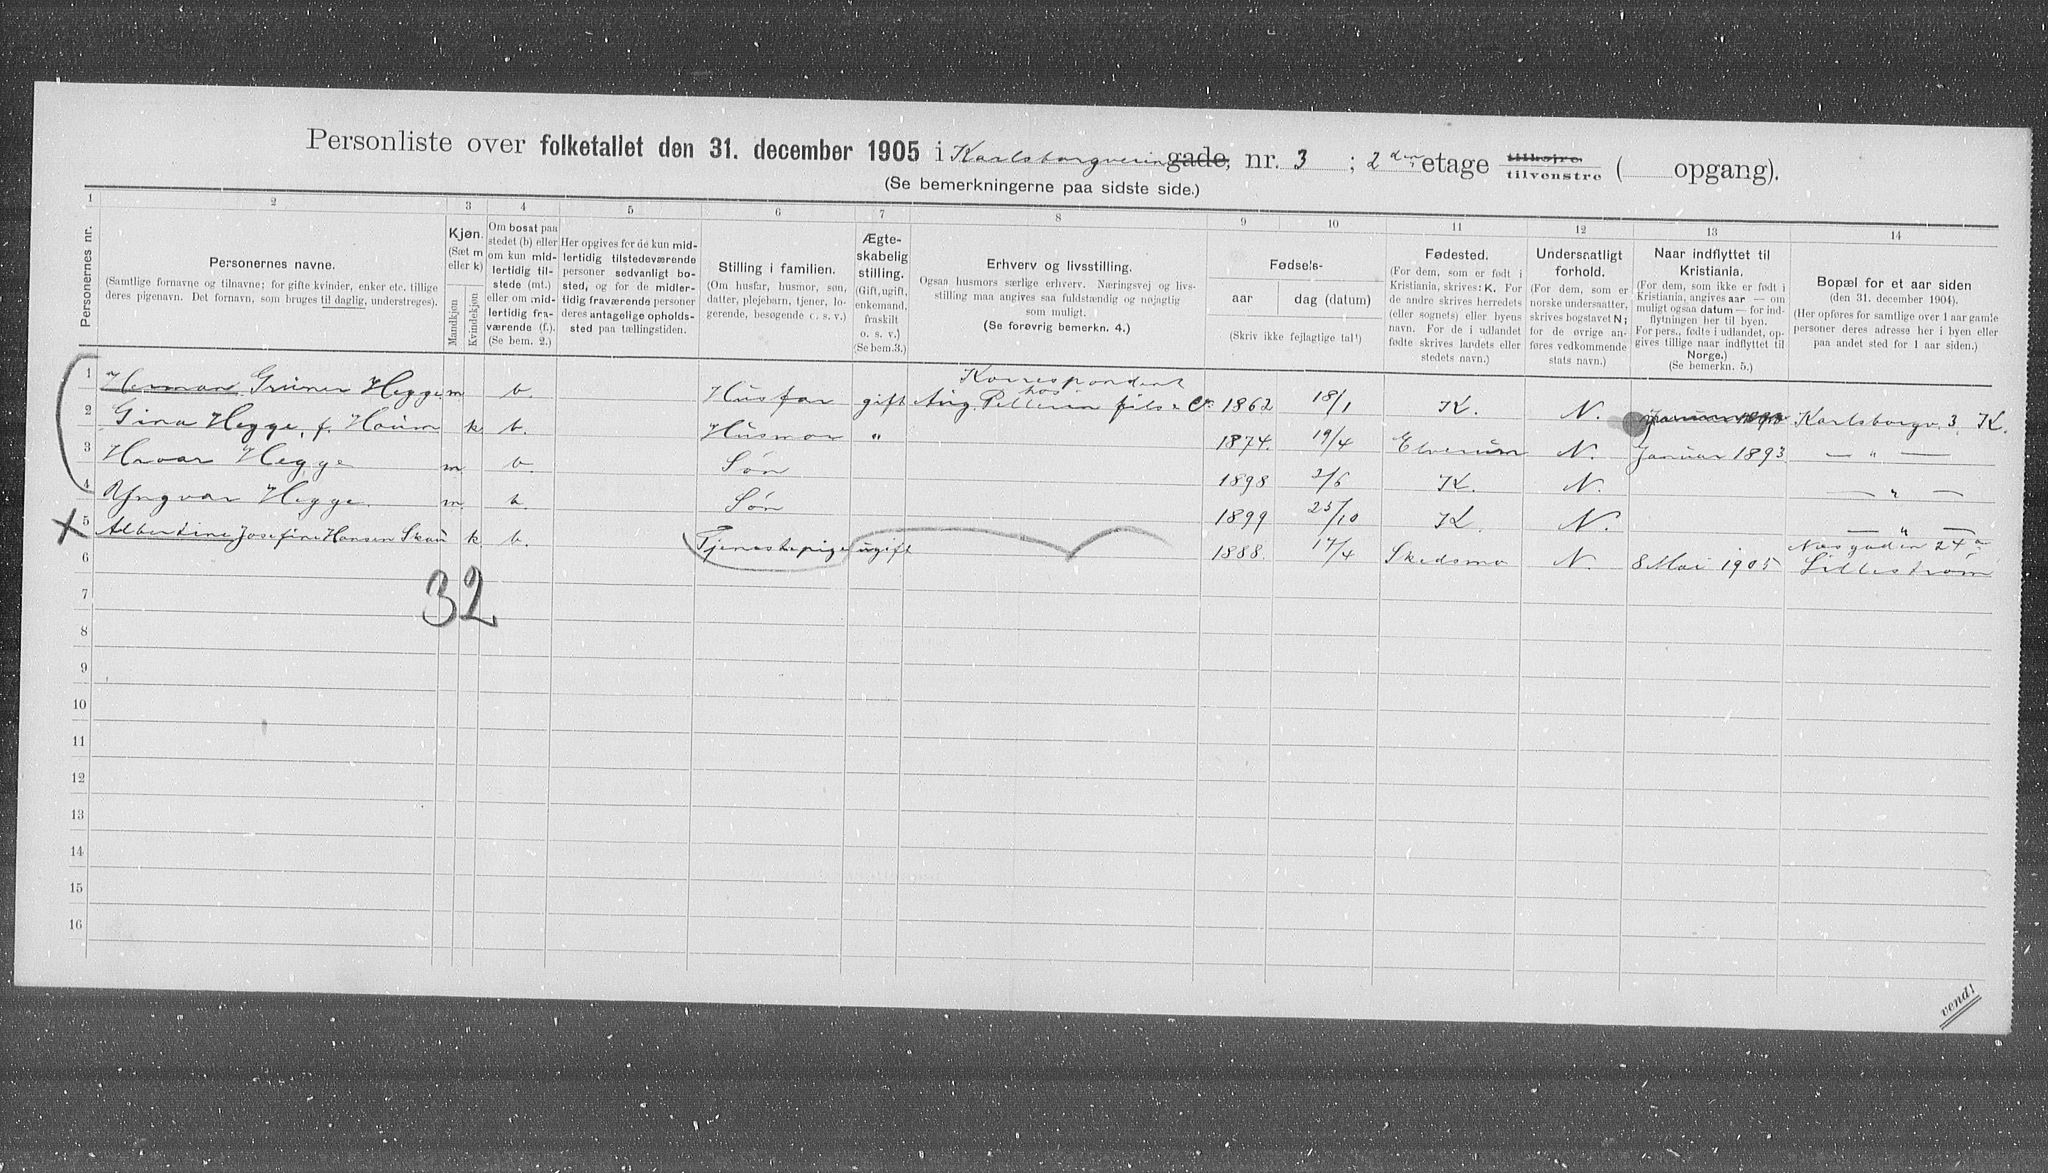 Personliste over folketallet den 31. december 1905 i Karlsborgveien gade, nr. 3 ; 2 den etage tilhøjre. tilvenstre ( opgang).
(Se bemerkningerne paa sidste side.)
1 2 3 4 5 6 7 8 9 10 11 12 13 14
Personernes nr.
Personernes navne.
(Samtlige fornavne og tilnavne; for gifte kvinder, enker etc. tillige deres pigenavn. Det fornavn, som bruges til daglig, understreges).
Kjøn.
(Sæt m eller k)
Mandkjøn
Kvindekjøn
Om bosat paa stedet (b) eller om kun midlertidig tilstede (mt.) eller om midlertidig fraværende (f.). (Se bem. 2.)
Her opgives for de kun midlertidig tilstedeværende personer sedvanligt bosted, og for de midlertidig fraværende personer deres antagelige opholdssted paa tællingstiden.
Stilling i familien.
(Om husfar, husmor, søn, datter, plejebarn, tjener, logerende, besøgende o. s. v.)
Ægteskabelig stilling.
(Gift, ugift, enkemand, fraskilt o. s. v.)
(Se bem. 3.)
Erhverv og livsstilling.
Ogsaa husmors særlige erhverv. Næringsvej og livsstilling maa angives saa fuldstændig og nøjagtig som muligt.
(Se forøvrig bemerkn. 4.)
Fødsels-
aar
dag (datum)
(Skriv ikke fejlagtige tal!)
Fødested.
(For dem, som er født i Kristiania, skrives: K. For de andre skrives herredets (eller sognets) eller byens navn. For de i udlandet fødte skrives landets eller stedets navn.)
Undersaatligt forhold.
(For dem, som er norske undersaatter, skrives bogstavet N; for de øvrige anføres vedkommende stats navn.)
Naar indflyttet til Kristiania.
(For dem, som ikke er født i Kristiania, angives aar — om muligt ogsaa datum — for indflytningen her til byen. For pers., fødte i udlandet, opgives tillige naar indflyttet til Norge.)
(Se bemerkn. 5.)
Bopæl for et aar siden
(den 31. december 1904).
(Her opføres for samtlige over 1 aar gamle personer deres adresse her i byen eller paa andet sted for 1 aar siden.)
1 Herman Grüner Hegge m b. Husfar gift Korrespondent hos Aug. Pellerin fils & Co. 1862 18/1 K. N. Januar 1893 Karlsborgv. 3. K.
2 Gina Hegge, f. Houm k b. Husmor " 1874. 19/4 Elverum N. Januar 1893 — " —
3 Hroar Hegge m b. Søn 1898 2/6 K. N. — " —
4 Yngvar Hegge m. b. Søn 1899 25/10 K. N. — " —
5 Albertine Josefine Hansen Skau k. b. Tjenestepige ugift 1888. 17/4 Skedsmo N. 8 Mai 1905 Næsgaden 24 a Lillestrøm
6
32
7
8
9
10
11
12
13
14
15
16
vend!